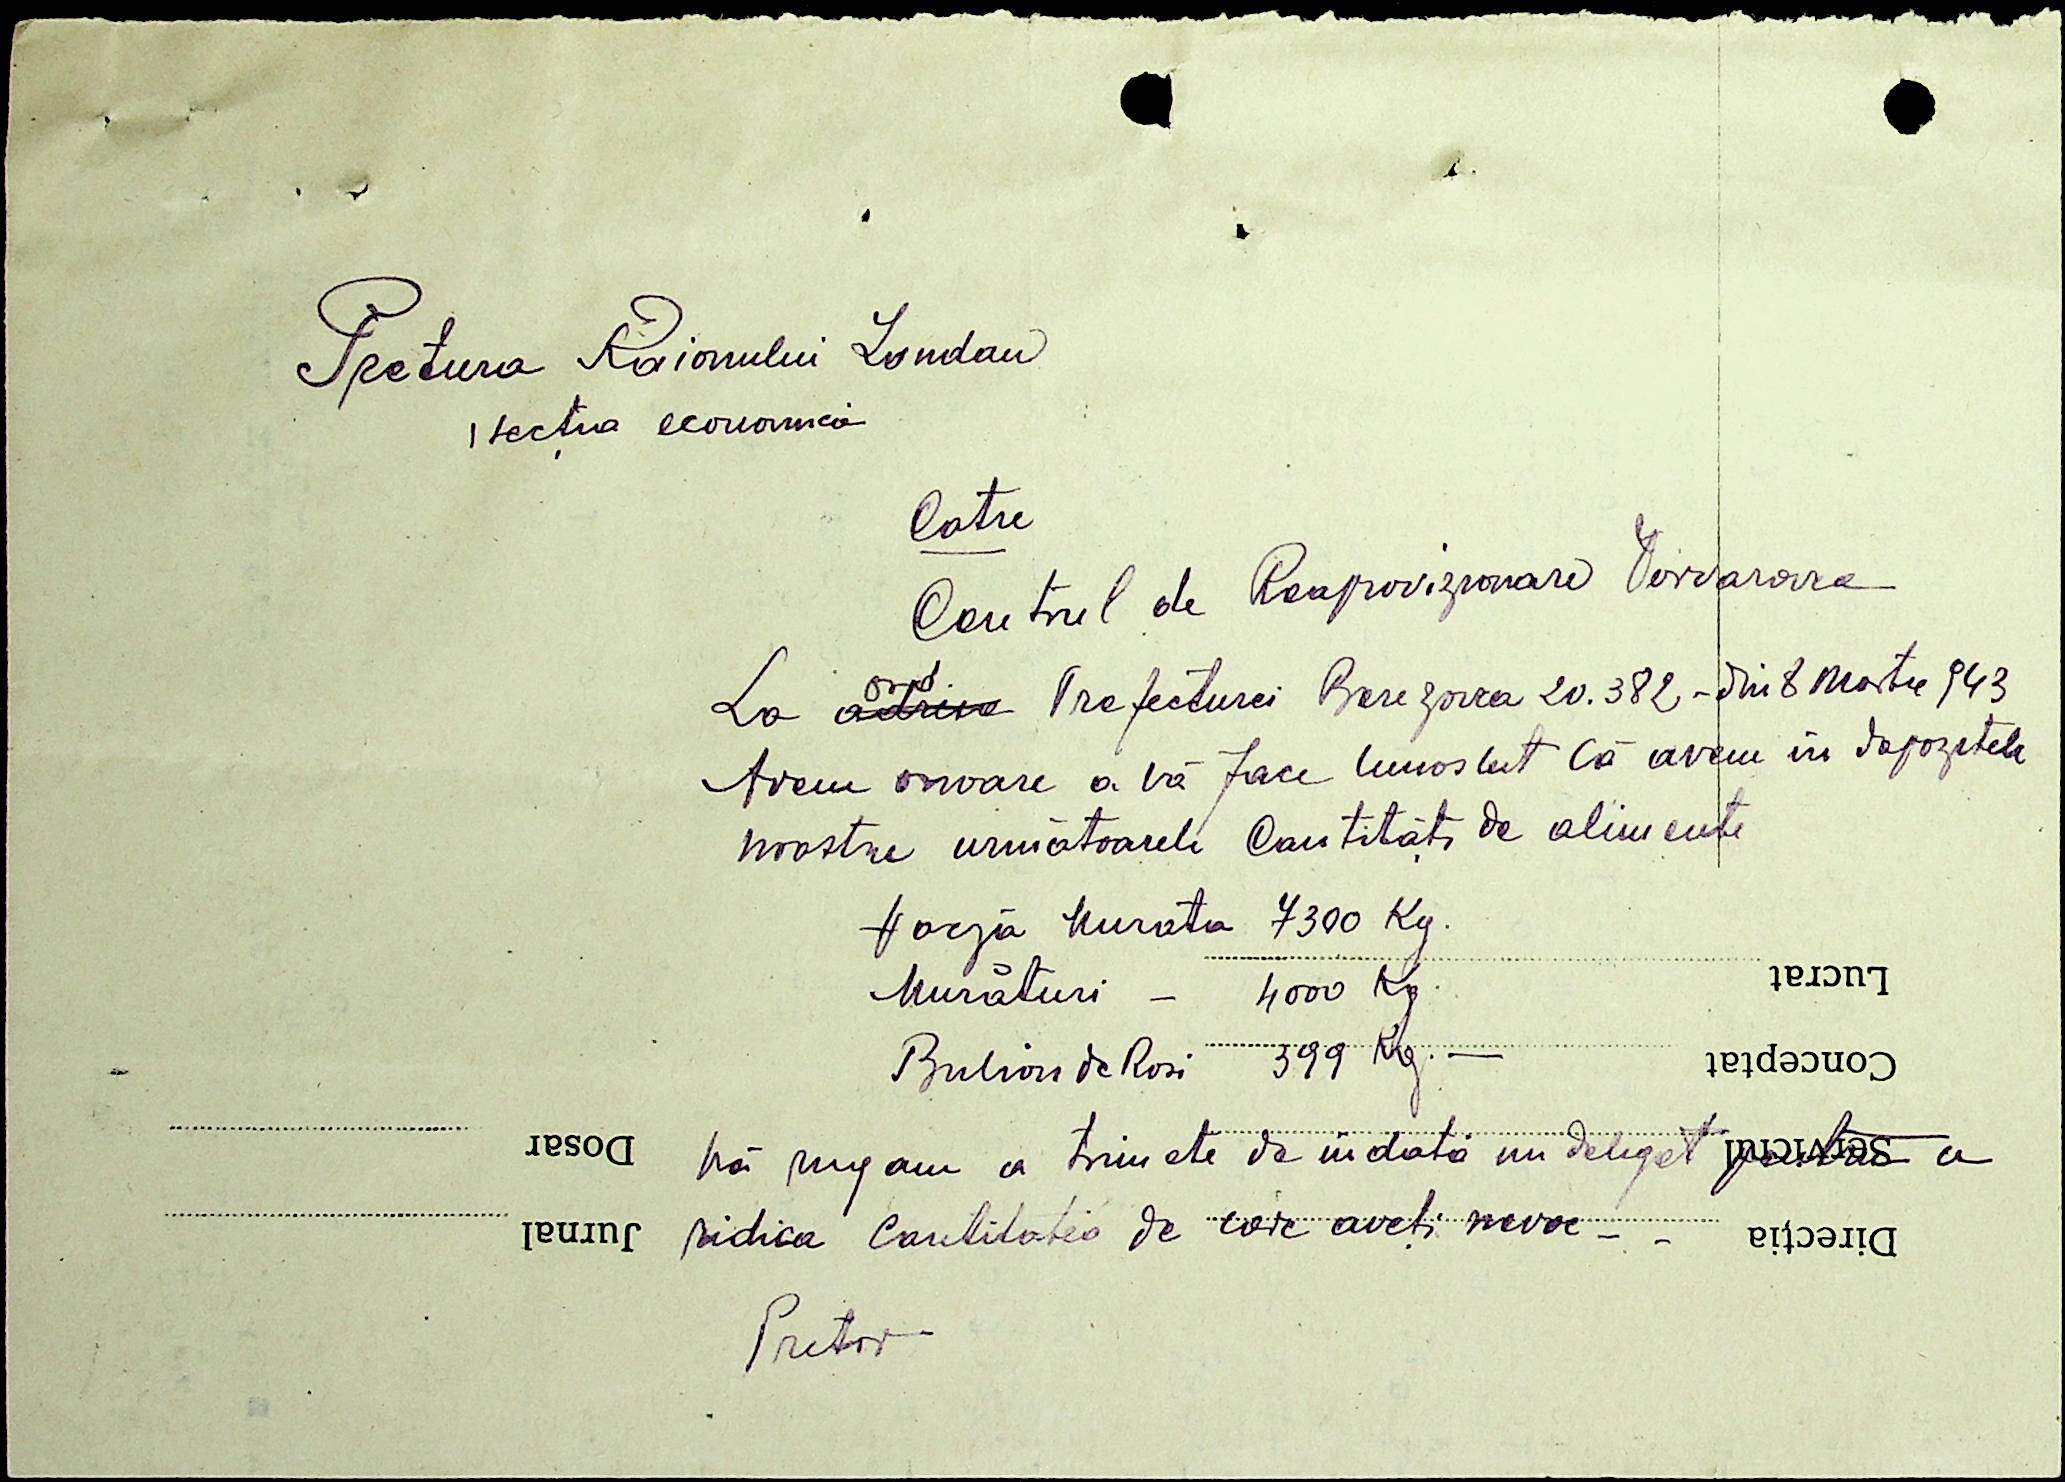 Pretura Raionului Landau
secția economică
Catre
Centrul de Reaprovizionare Varvarovca
La ord. adresa Prefecturei Berezovca 20.382 - din 8 Martie 943
Avem onoare a vă face cunoscut că avem în depozitele
noastre următoarele Cantități de alimente
Varză Murata 7300 Kg.
Murături - 4000 Kg.
Bulion de Rosi 399 Kg. -
Vă rugam a trimete de îndată un delegat pentru a
ridica Cantitatea de care aveți nevoe - -
Pretor
Lucrat
Conceptat
Serviciul
Direcția
Dosar
Jurnal